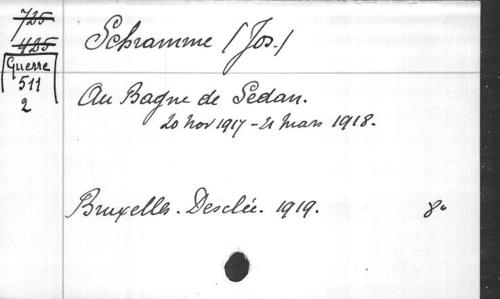 725
425
Guerre
511
2
Schramme (Jos.)
Au Bagne de Sedan.
20 Nov 1917 - 21 Mars 1918.
Bruxelles. Desclée. 1919. 8°